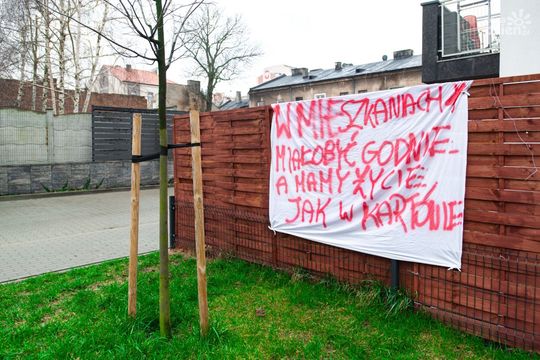 W MIESZKANIACH
MIAŁOBYĆ GODNIE
A MAMY ŻYCIE
JAK W KARTONIE